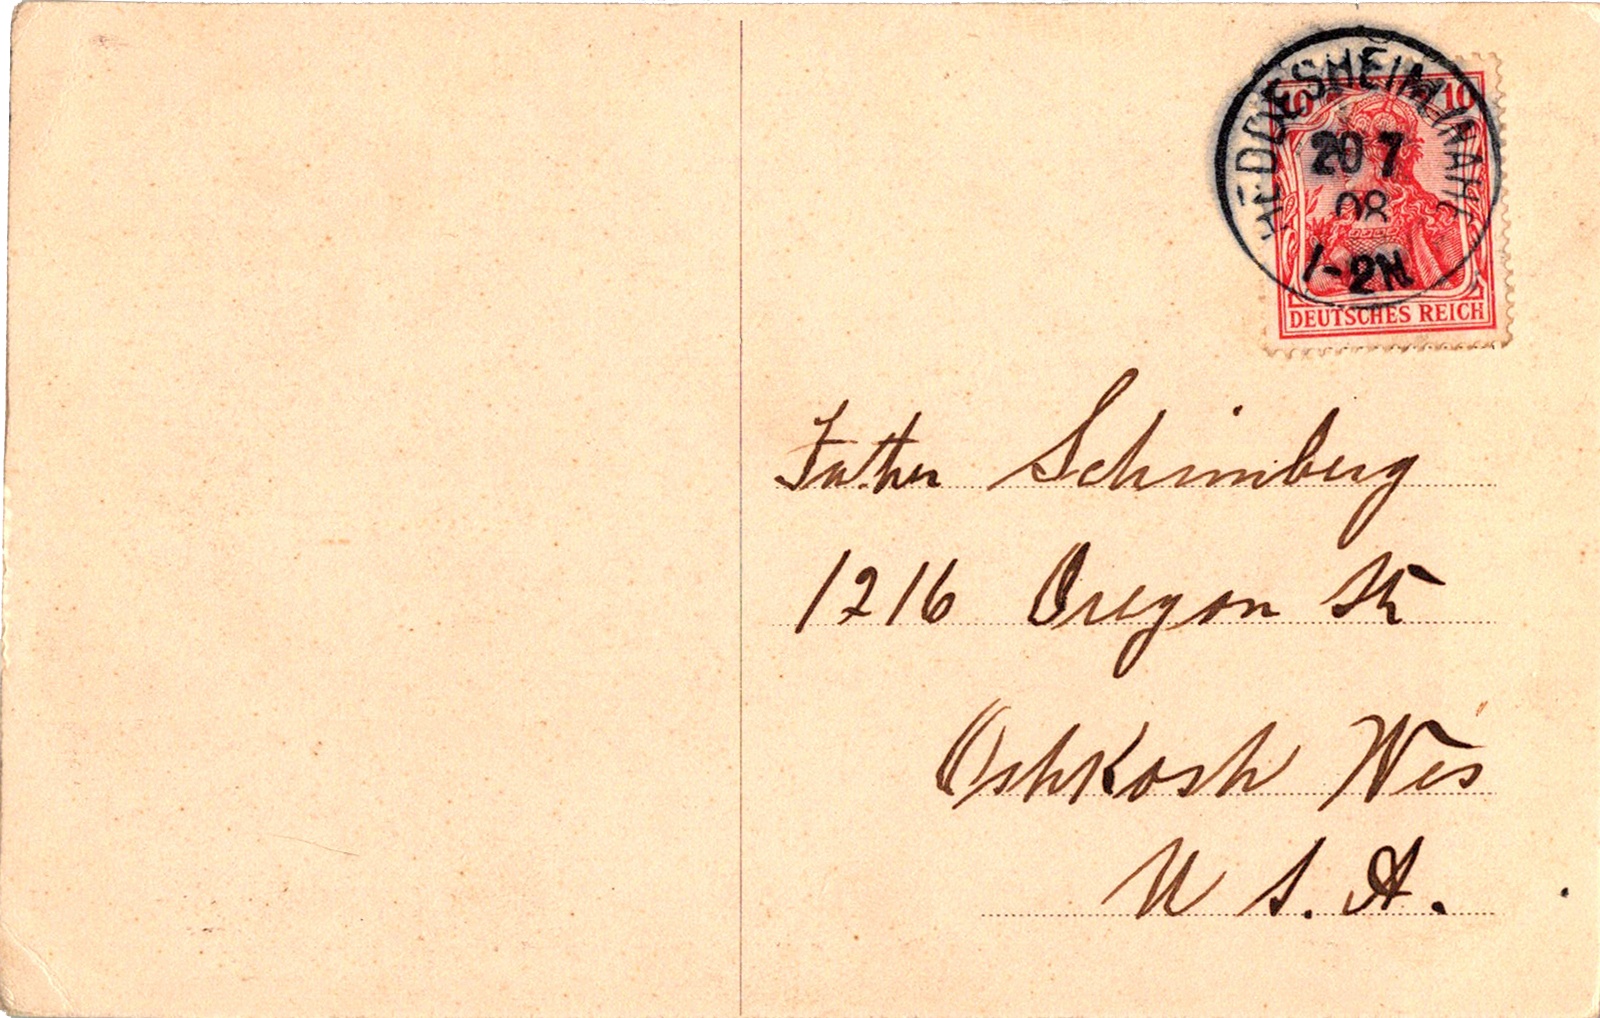 HEDDESHEIM (NAHE)
10 10
20 7
08
1-2N
DEUTSCHES REICH
Father Schimberg
1216 Oregon St
Oshkosh Wis
U S. A.